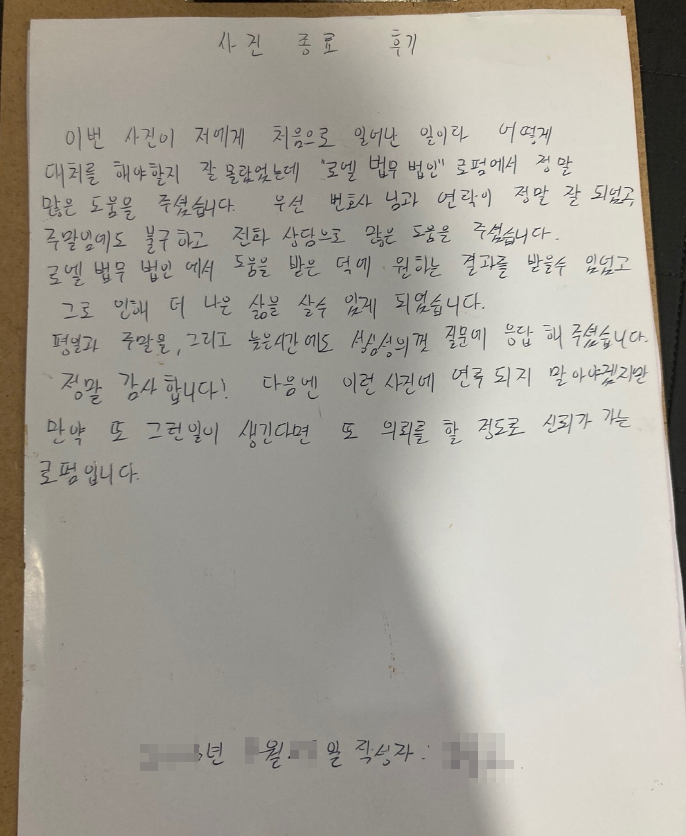 사건 종료 후기
이번 사건이 저에게 처음으로 일어난 일이라 어떻게
대처를 해야할지 잘 몰랐었는데 "로엘 법무 법인" 로펌에서 정말
많은 도움을 주셨습니다. 우선 변호사 님과 연락이 정말 잘 되었고,
주말임에도 불구하고 전화 상담으로 많은 도움을 주셨습니다.
로엘 법무 법인 에서 도움을 받은 덕에 원하는 결과를 받을수 있었고
그로 인해 더 나은 삶을 살수 있게 되었습니다.
평일과 주말을, 그리고 늦은시간에도 성심성의껏 질문에 응답 해 주셨습니다.
정말 감사합니다! 다음엔 이런 사건에 연루 되지 말아야겠지만
만약 또 그런일이 생긴다면 또 의뢰를 할 정도로 신뢰가 가는
로펌입니다.
년 월 일 작성자 :